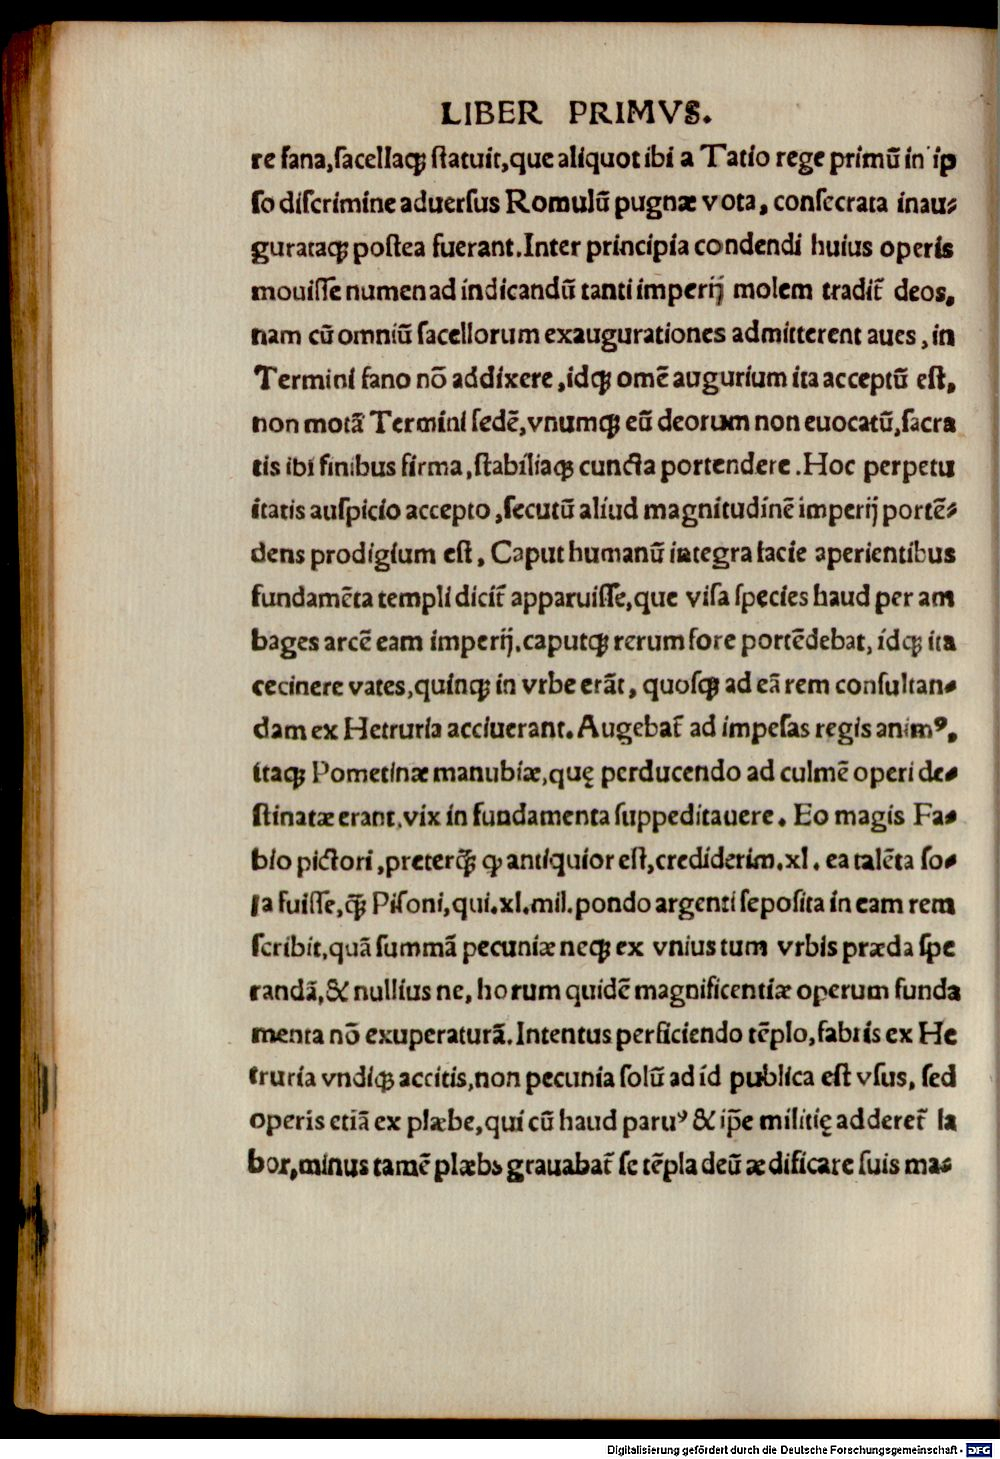 LIBER PRIMVS.
re fana,ſacellaqꝫ ſtatuit,que aliquot ibi a Tatio rege primũ in ip
ſo diſcrimine aduerſus Romulũ pugnæ vota, conſecrata inau⸗
gurataqꝫ poſtea fuerant.Inter principia condendi huius operis
mouiſſe numen ad indicandũ tanti imperij molem tradit̃ deos,
nam cũ omniũ ſacellorum exaugurationes admitterent aues, in
Termini fano nõ addixere, idqꝫ omẽ augurium ita acceptũ eſt,
non motã Termini ſedẽ, vnumqꝫ eũ deorum non euocatũ,ſacra
tis ibi finibus firma, ſtabiliaqꝫ cuncta portendere.Hoc perpetu
itatis auſpicio accepto, ſecutũ aliud magnitudinẽ imperij portẽ⸗
dens prodigium eſt, Caput humanũ integra facie aperientibus
fundamẽta templi dicit̃ apparuiſſe,que viſa ſpecies haud per am
bages arcẽ eam imperij.caputqꝫ rerum fore portẽdebat, idqꝫ ita
cecinere vates,quinqꝫ in vrbe erãt, quoſqꝫ ad eã rem conſultan⸗
dam ex Hetruria acciuerant. Augebat̃ ad impeſas regis animꝰ,
itaqꝫ Pometinæ manubiæ,quę perducendo ad culmẽ operi de⸗
ſtinatæ erant,vix in fundamenta ſuppeditauere. Eo magis Fa⸗
bio pictori, preterq̃ꝫ ꝙ antiquior eſt,crediderim.xl. ea talẽta ſo⸗
la fuiſſe,q̃ꝫ Piſoni,qui.xl.mil.pondo argenti ſepoſita in eam rem
ſcribit,quã ſummã pecuniæ neqꝫ ex vnius tum vrbis præda ſpe
randã,& nullius ne, horum quidẽ magnificentiæ operum funda
menta nõ exuperaturã.Intentus perficiendo tẽplo,fabris ex He
truria vndiqꝫ accitis,non pecunia ſolũ ad id publica eſt vſus, ſed
operis etiã ex plæbe,qui cũ haud paruꝰ & ip̃e militię adderet̃ la
bor,minus tamẽ plæbs grauabat̃ ſe tẽpla deũ ædificare ſuis ma⸗
Digitalisierung gefördert durch die Deutsche Forschungsgemeinschaft - DFG